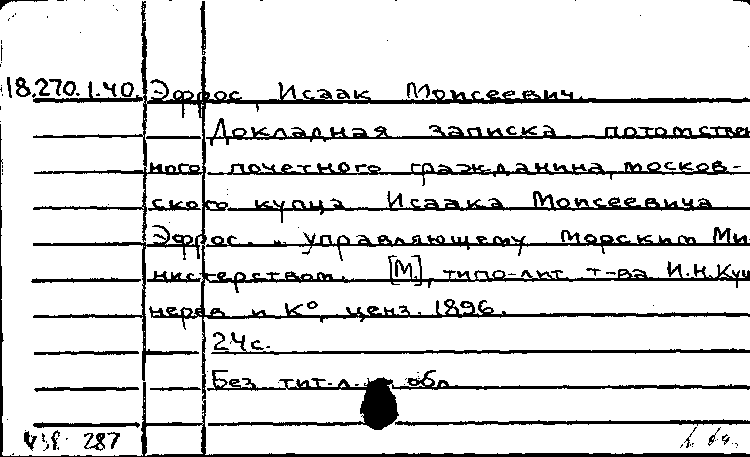 18.270.1.40. Эфрос, Исаак Моисеевич.
Докладная записка потомствен
ного почетного гражданина, москов-
ского купца Исаака Моисеевича
Эфрос... управляющему Морским Ми
нистерством. [М], типо-лит. т-ва И.Н.Куш
нерев и К°, ценз. 1896.
24с.
Без тит.л. и обл.
287